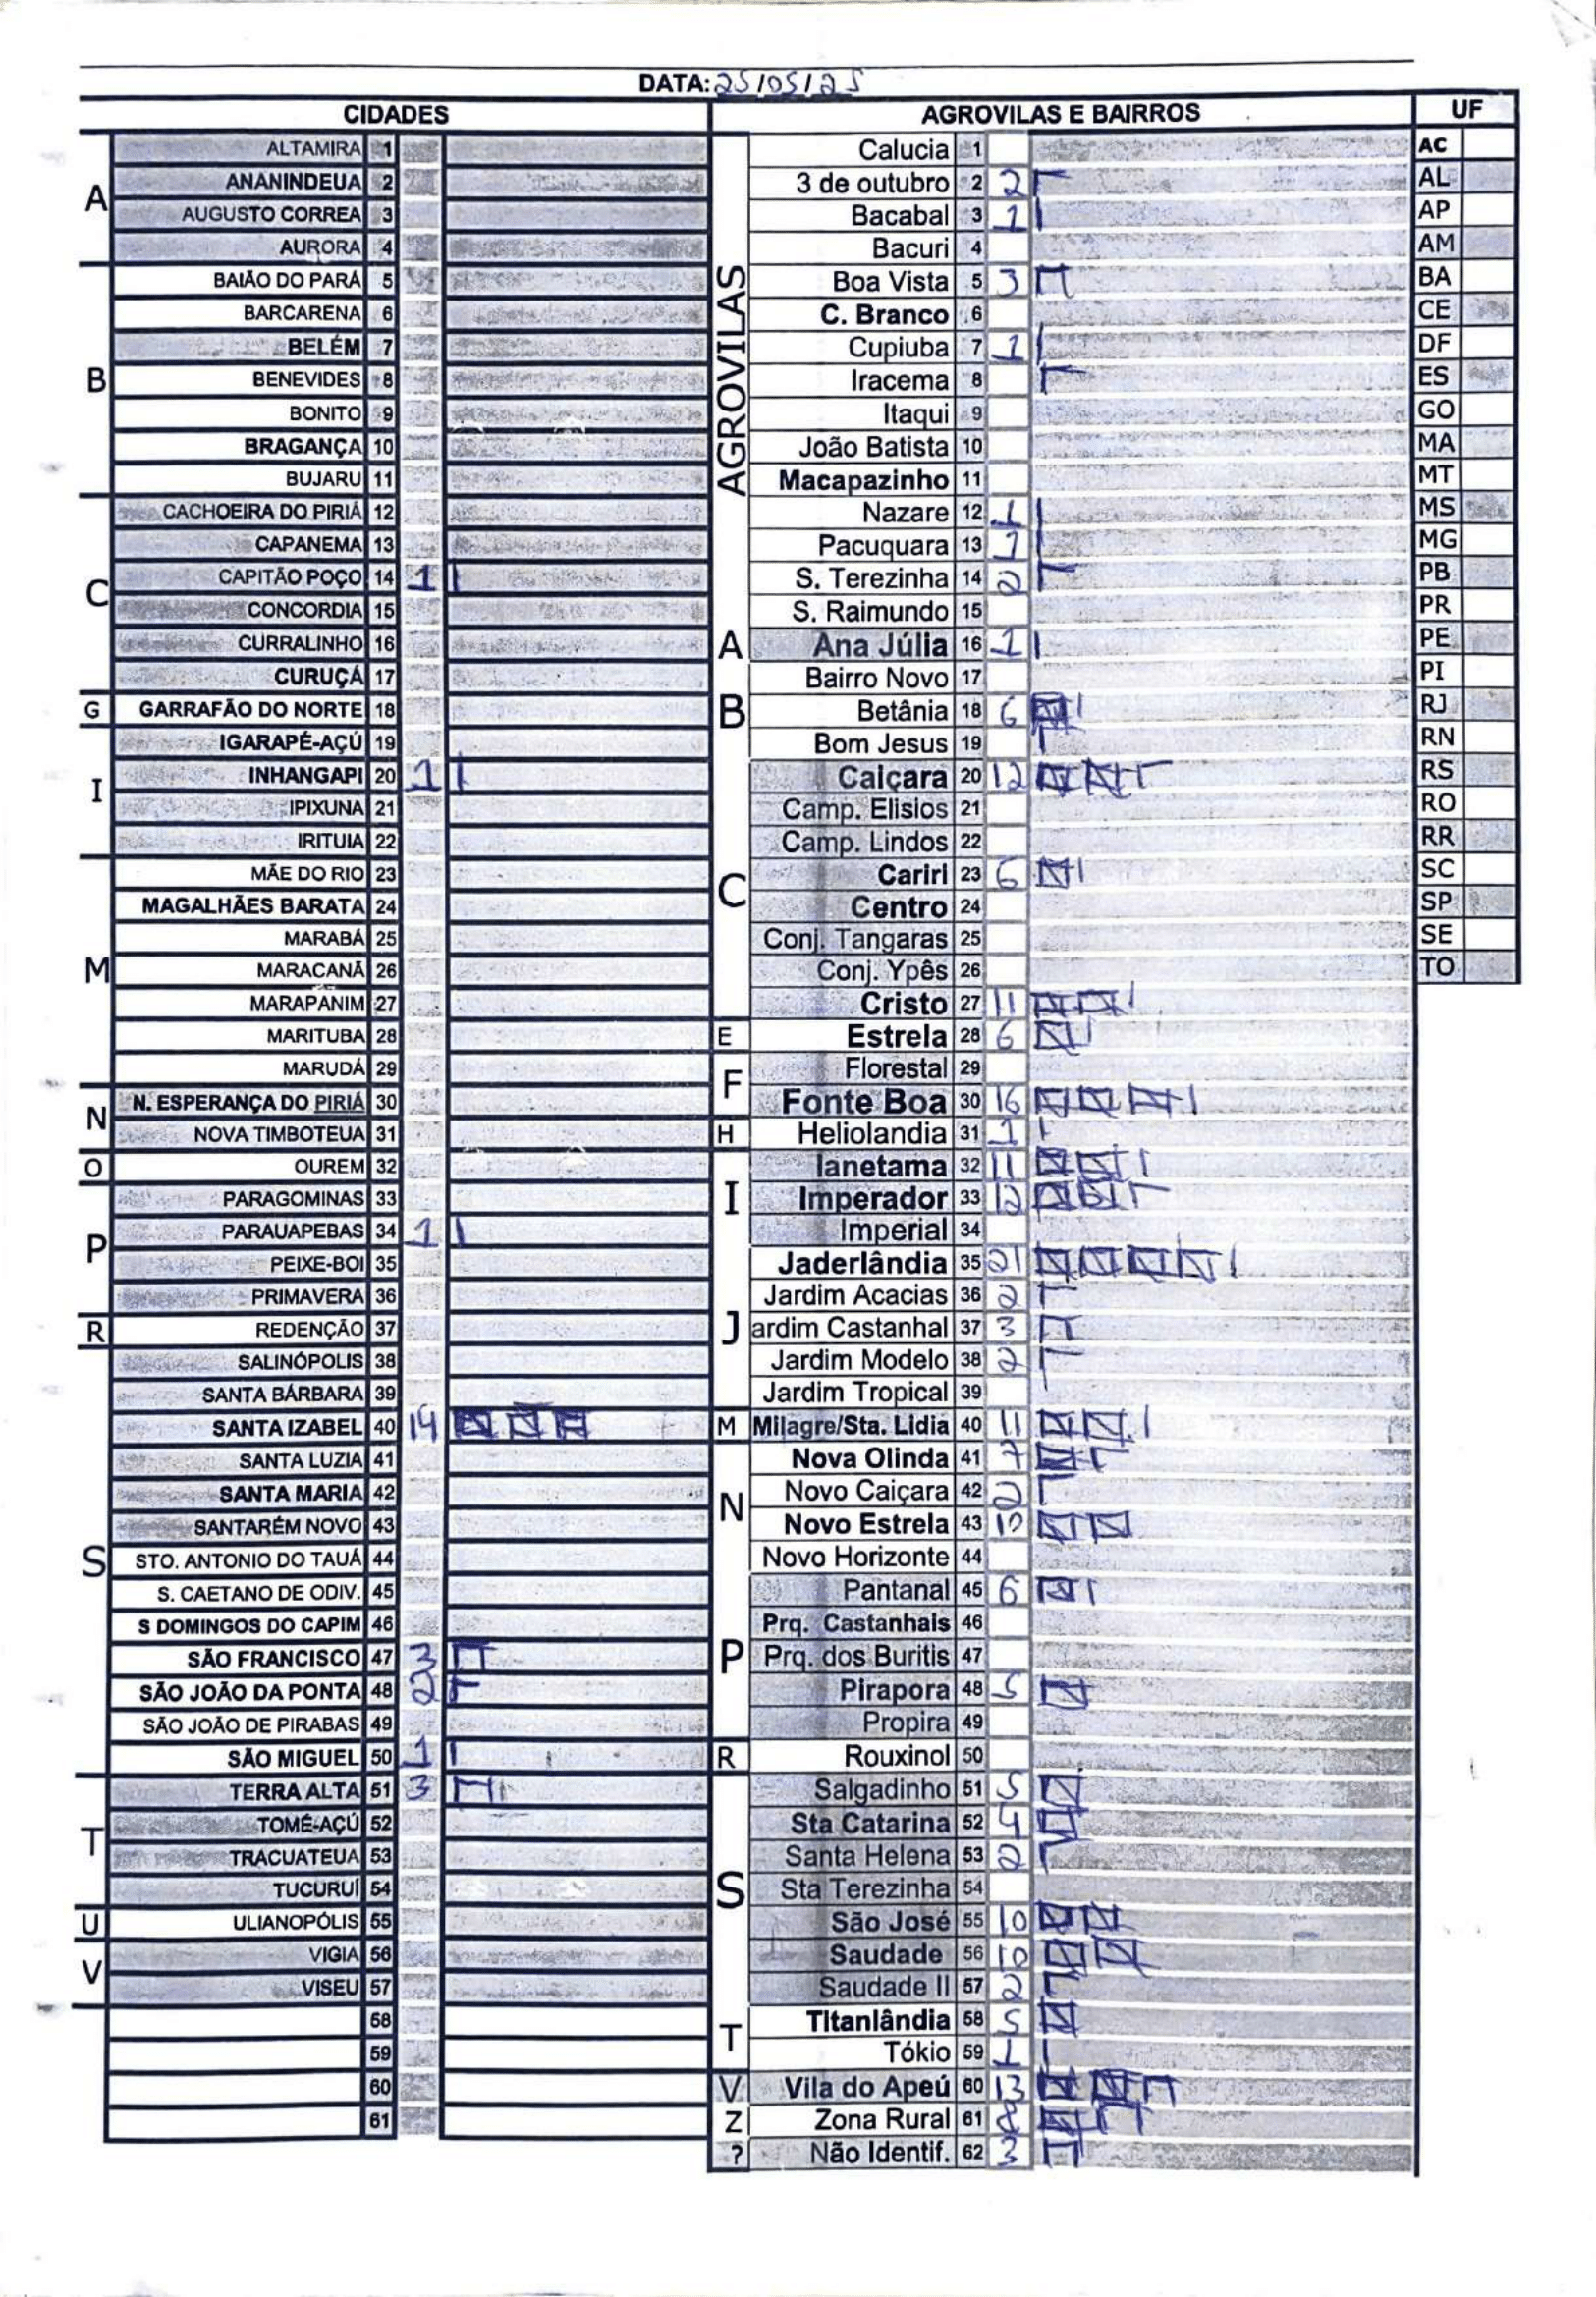 DATA: 25/05/25
CIDADES
A
ALTAMIRA 1
ANANINDEUA 2
AUGUSTO CORREA 3
AURORA 4
B
BAIÃO DO PARÁ 5
BARCARENA 6
BELÉM 7
BENEVIDES 8
BONITO 9
BRAGANÇA 10
BUJARU 11
C
CACHOEIRA DO PIRIÁ 12
CAPANEMA 13
CAPITÃO POÇO 14 1
CONCORDIA 15
CURRALINHO 16
CURUÇÁ 17
G
GARRAFÃO DO NORTE 18
I
IGARAPÉ-AÇÚ 19
INHANGAPI 20 1
IPIXUNA 21
IRITUIA 22
M
MÃE DO RIO 23
MAGALHÃES BARATA 24
MARABÁ 25
MARACANÃ 26
MARAPANIM 27
MARITUBA 28
MARUDÁ 29
N
N. ESPERANÇA DO PIRIÁ 30
NOVA TIMBOTEUA 31
O
OUREM 32
P
PARAGOMINAS 33
PARAUAPEBAS 34 1
PEIXE-BOI 35
PRIMAVERA 36
R
REDENÇÃO 37
S
SALINÓPOLIS 38
SANTA BÁRBARA 39
SANTA IZABEL 40 14
SANTA LUZIA 41
SANTA MARIA 42
SANTARÉM NOVO 43
STO. ANTONIO DO TAUÁ 44
S. CAETANO DE ODIV. 45
S DOMINGOS DO CAPIM 46
SÃO FRANCISCO 47 3
SÃO JOÃO DA PONTA 48 2
SÃO JOÃO DE PIRABAS 49
SÃO MIGUEL 50 1
T
TERRA ALTA 51 3
TOMÉ-AÇÚ 52
TRACUATEUA 53
TUCURUÍ 54
U
ULIANOPÓLIS 55
V
VIGIA 56
VISEU 57
58
59
60
61
AGROVILAS E BAIRROS
AGROVILAS
Calucia 1
3 de outubro 2 2
Bacabal 3 1
Bacuri 4
Boa Vista 5 3
C. Branco 6
Cupiuba 7 1
Iracema 8
Itaqui 9
João Batista 10
Macapazinho 11
Nazare 12 1
Pacuquara 13 1
S. Terezinha 14 2
S. Raimundo 15
A
Ana Júlia 16 1
B
Bairro Novo 17
Betânia 18 6
Bom Jesus 19
C
Caiçara 20 12
Camp. Elisios 21
Camp. Lindos 22
Cariri 23 6
Centro 24
Conj. Tangaras 25
Conj. Ypês 26
Cristo 27 11
E
Estrela 28 6
F
Florestal 29
Fonte Boa 30 16
H
Heliolandia 31 1
I
Ianetama 32 11
Imperador 33 12
Imperial 34
J
Jaderlândia 35 21
Jardim Acacias 36 2
ardim Castanhal 37 3
Jardim Modelo 38 2
Jardim Tropical 39
M
Milagre/Sta. Lidia 40 11
N
Nova Olinda 41 7
Novo Caiçara 42 2
Novo Estrela 43 10
Novo Horizonte 44
P
Pantanal 45 6
Prq. Castanhais 46
Prq. dos Buritis 47
Pirapora 48 5
Propira 49
R
Rouxinol 50
S
Salgadinho 51 5
Sta Catarina 52 4
Santa Helena 53 2
Sta Terezinha 54
São José 55 10
Saudade 56 10
Saudade II 57 2
T
Titanlândia 58 5
Tókio 59 1
V
Vila do Apeú 60 13
Z
Zona Rural 61 8
?
Não Identif. 62 3
UF
AC
AL
AP
AM
BA
CE
DF
ES
GO
MA
MT
MS
MG
PB
PR
PE
PI
RJ
RN
RS
RO
RR
SC
SP
SE
TO